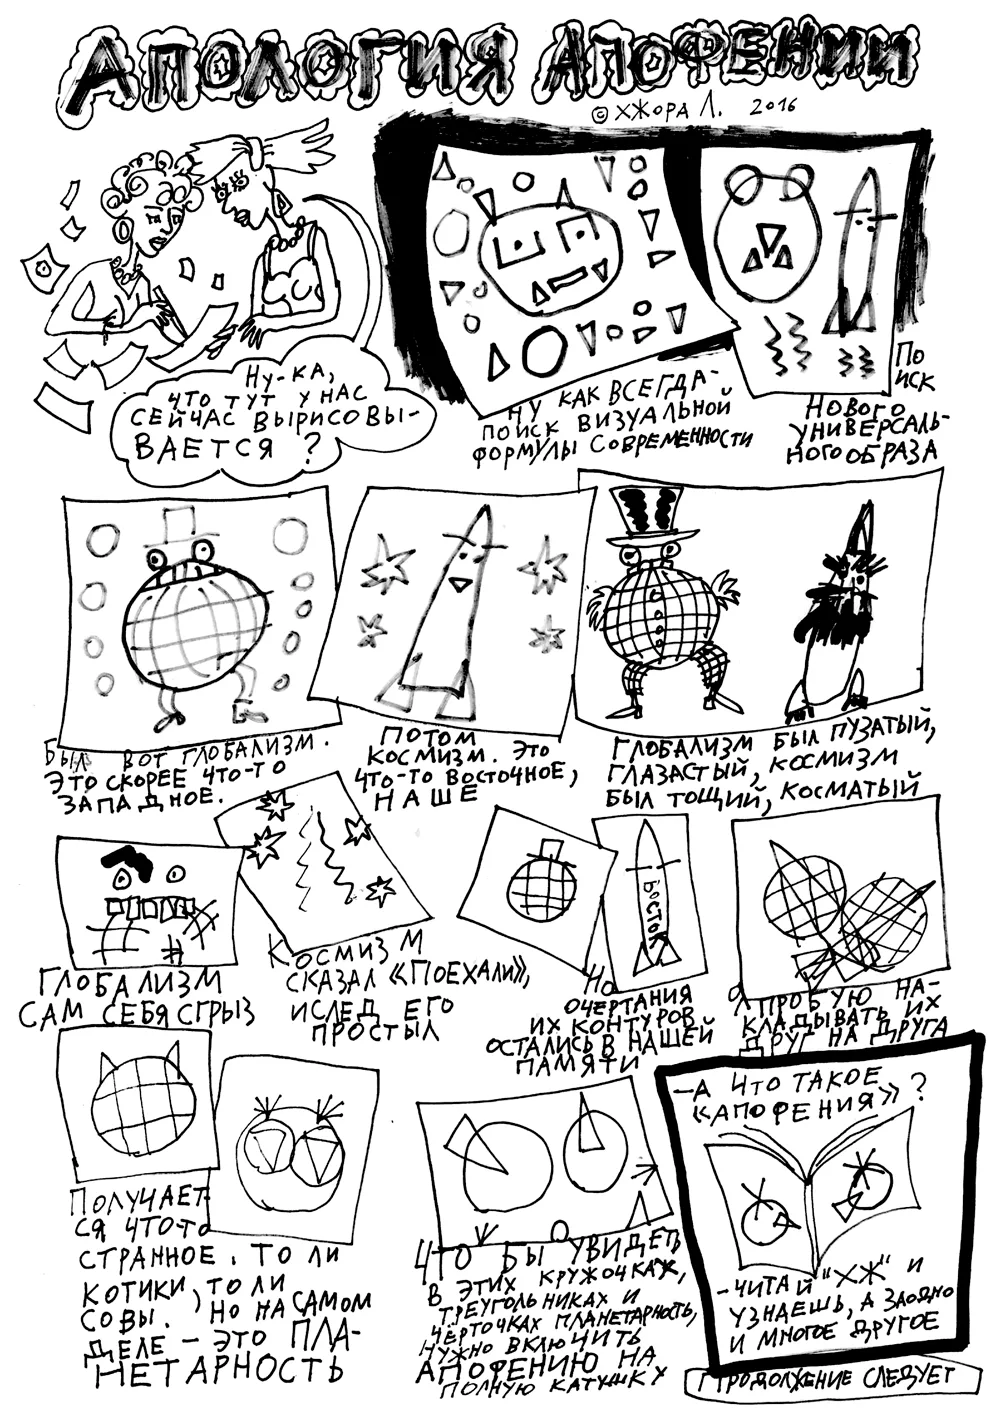 АПОЛОГИЯ АПОФЕНИИ
© ХЖОРА Л. 2016
НУ-КА,
ЧТО ТУТ У НАС
СЕЙЧАС ВЫРИСОВЫ-
ВАЕТСЯ ?
НУ КАК ВСЕГДА-
ПОИСК ВИЗУАЛЬНОЙ
ФОРМУЛЫ СОВРЕМЕННОСТИ
ПО
ИСК
НОВОГО
УНИВЕРСАЛЬ-
НОГО ОБРАЗА
БЫЛ ВОТ ГЛОБАЛИЗМ.
ЭТО СКОРЕЕ ЧТО-ТО
ЗАПАДНОЕ.
ПОТОМ
КОСМИЗМ. ЭТО
ЧТО-ТО ВОСТОЧНОЕ,
НАШЕ
ГЛОБАЛИЗМ БЫЛ ПУЗАТЫЙ,
ГЛАЗАСТЫЙ, КОСМИЗМ
БЫЛ ТОЩИЙ, КОСМАТЫЙ
ГЛОБАЛИЗМ
САМ СЕБЯ СГРЫЗ
КОСМИЗМ
СКАЗАЛ «ПОЕХАЛИ»,
И СЛЕД ЕГО
ПРОСТЫЛ
ВОСТОК
НО
ОЧЕРТАНИЯ
ИХ КОНТУРОВ
ОСТАЛИСЬ В НАШЕЙ
ПАМЯТИ
ПОПРОБУЮ НА-
КЛАДЫВАТЬ ИХ
ДРУГ НА ДРУГА
ПОЛУЧАЕТ-
СЯ ЧТО-ТО
СТРАННОЕ. ТО ЛИ
КОТИКИ, ТО ЛИ
СОВЫ. НО НА САМОМ
ДЕЛЕ – ЭТО ПЛА-
НЕТАРНОСТЬ
ЧТО БЫ УВИДЕТЬ
В ЭТИХ КРУЖОЧКАХ,
ТРЕУГОЛЬНИКАХ И
ЧЁРТОЧКАХ ПЛАНЕТАРНОСТЬ,
НУЖНО ВКЛЮЧИТЬ
АПОФЕНИЮ НА
ПОЛНУЮ КАТУШКУ
—А ЧТО ТАКОЕ
«АПОФЕНИЯ» ?
-ЧИТАЙ "ХЖ" И
УЗНАЕШЬ, А ЗАОДНО
И МНОГОЕ ДРУГОЕ
ПРОДОЛЖЕНИЕ СЛЕДУЕТ